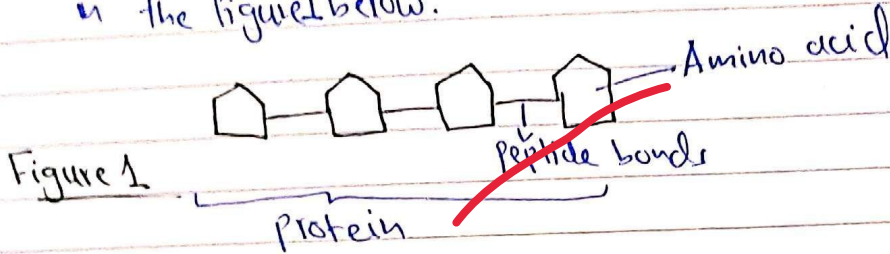 in the figure1 below.
Amino acid
peptide bonds
Figure 1
protein